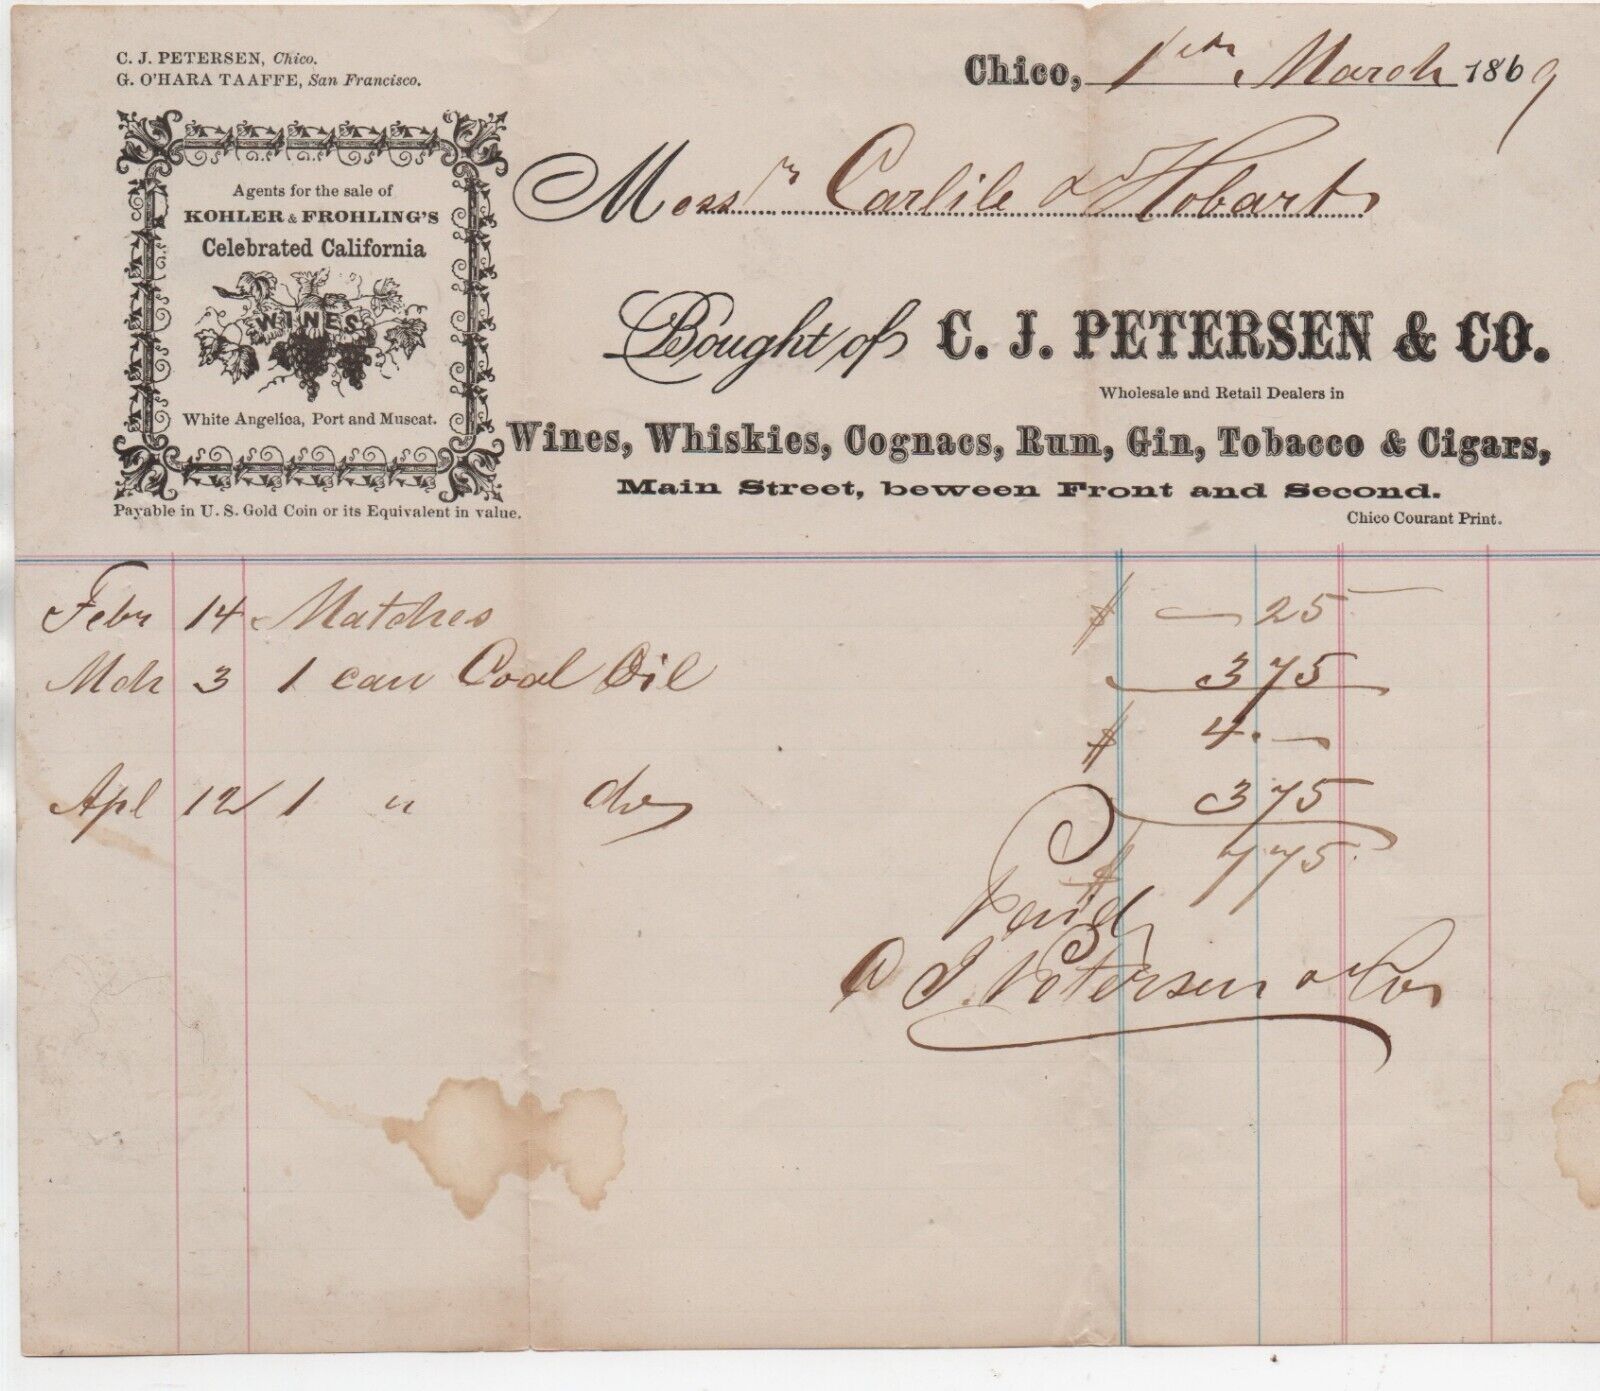 C. J. PETERSEN, Chico.
G. O'HARA TAAFFE, San Francisco.
Chico, 1 March 1869
Agents for the sale of
KOHLER & FROHLING'S
Celebrated California
WINES
White Angelica, Port and Muscat.
Payable in U. S. Gold Coin or its Equivalent in value.
Messrs Carlile & Hobart
Bought of C. J. PETERSEN & CO.
Wholesale and Retail Dealers in
Wines, Whiskies, Cognacs, Rum, Gin, Tobacco & Cigars,
Main Street, beween Front and Second.
Chico Courant Print.
Febr 14 Matches $ — 25
Mch 3 1 can Coal Oil 3 75
$ 4. —
Apl 12 1 " do 3 75
$ 7 75
Paid
C J. Petersen & Co